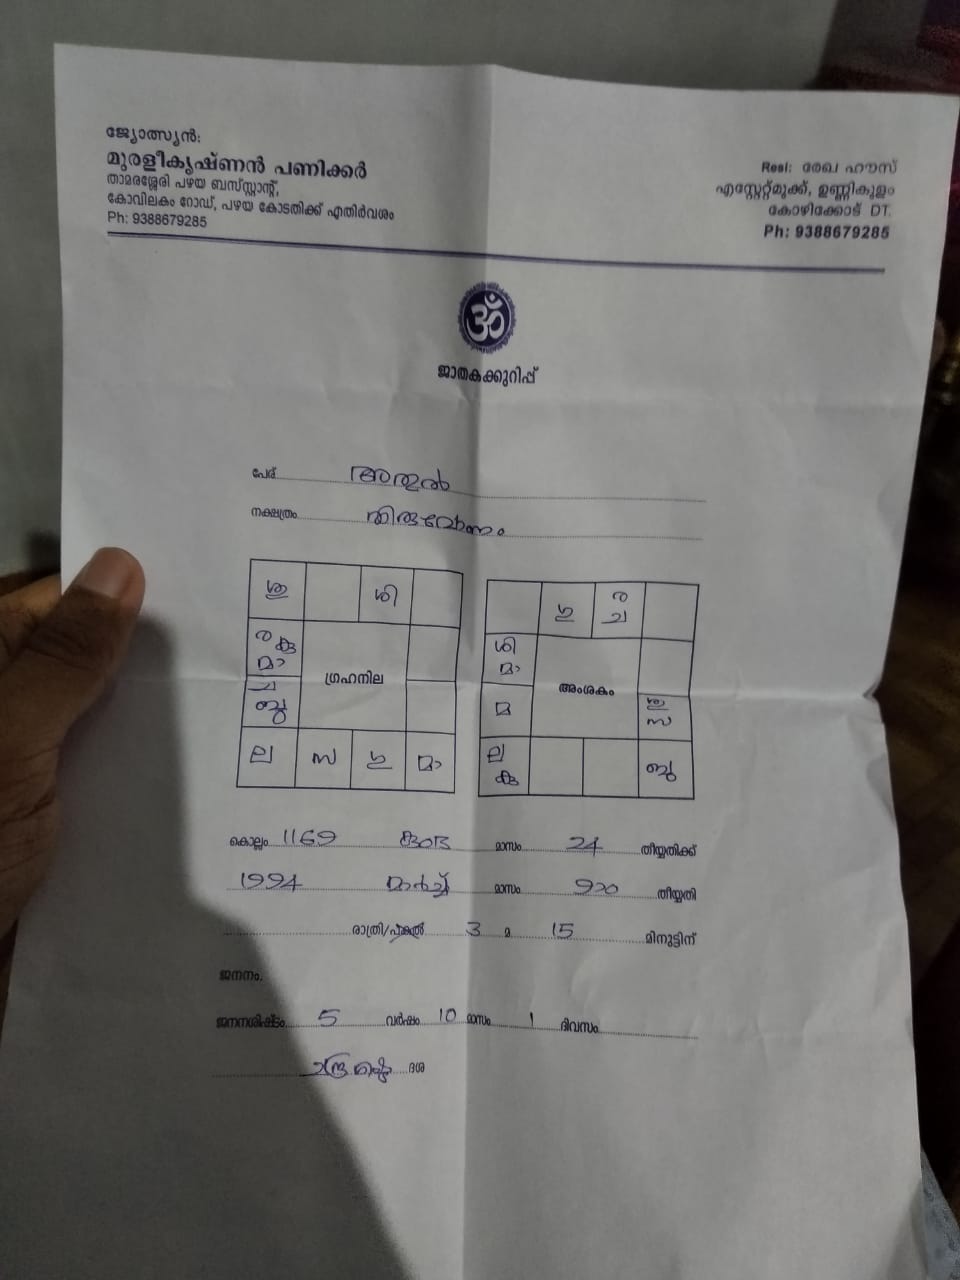 ജ്യോത്സ്യൻ:
മുരളീകൃഷ്ണൻ പണിക്കർ
താമരശ്ശേരി പഴയ ബസ്സ്റ്റാന്റ്,
കോവിലകം റോഡ്, പഴയ കോടതിക്ക് എതിർവശം
Ph: 9388679285
Resi: രേഖ ഹൗസ്
എസ്റ്റേറ്റ്മുക്ക്, ഉണ്ണികുളം
കോഴിക്കോട് DT.
Ph: 9388679285
ॐ
ജാതകക്കുറിപ്പ്
പേര് അതുൽ
നക്ഷത്രം തിരുവോണം
ശു ശി
ര കു
മാ
ച
ബു
ഗ്രഹനില
ല സ ഗു മാ
ഗു ര
ച
ശി
മാ
മ
അംശകം
ശു
സ
ല
കു
ബു
കൊല്ലം 1169 കുംഭ മാസം 24 തിയ്യതിക്ക്
1994 മാർച്ച് മാസം 9ാം തീയ്യതി
രാത്രി/പകൽ 3 മ 15 മിനുട്ടിന്
ജനനം.
ജനനശിഷ്ടം 5 വർഷം 10 മാസം 1 ദിവസം
ചന്ദ്ര ദശ